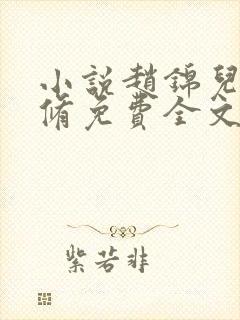 小説趙錦兒
脩免費全文
紫若非